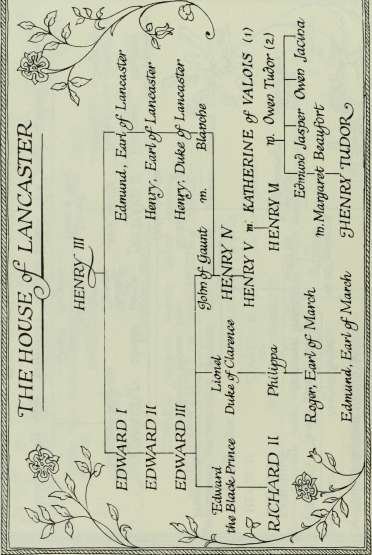 THE HOUSE of LANCASTER
HENRY III
EDWARD I
Edmund, Earl of Lancaster
EDWARD II
Henry, Earl of Lancaster
EDWARD III
Henry, Duke of Lancaster
Edward
the Black Prince
Lionel
Duke of Clarence
John of Gaunt m. Blanche
HENRY IV
RICHARD II
Philippa
HENRY V m KATHERINE of VALOIS (1)
m. Owen Tudor (2)
HENRY VI
Roger, Earl of March
Edmund Jasper Owen Jacina
m. Margaret Beaufort
Edmund, Earl of March
HENRY TUDOR